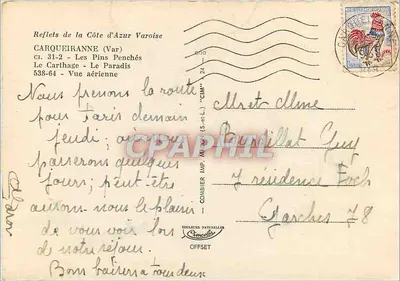 Reflets de la Côte d'Azur Varoise
CARQUEIRANNE (Var)
Cl. 31-2 - Les Pins Penchés
Le Carthage - Le Paradis
538-64 - Vue aérienne
Nous prenons la route
pour Paris demain
jeudi, où nous
passerons quelques
jours; peut-être
aurons nous le plaisir
de vous voir lors
de notre retour.
Bons baisers à tous deux
COMBIER IMP. MACON (S.-et-L.) "CIM"
COULEURS NATURELLES
OFFSET
Mr et Mme
Guy
7 résidence Foch
Garches 78
CPARCHIVE